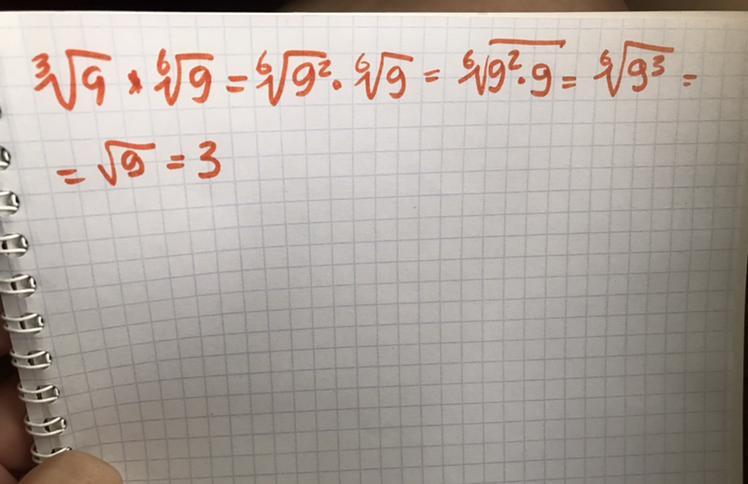 ∛9 * ⁶√9 = ⁶√9² · ⁶√9 = ⁶√(9² · 9) = ⁶√9³ =
= √9 = 3